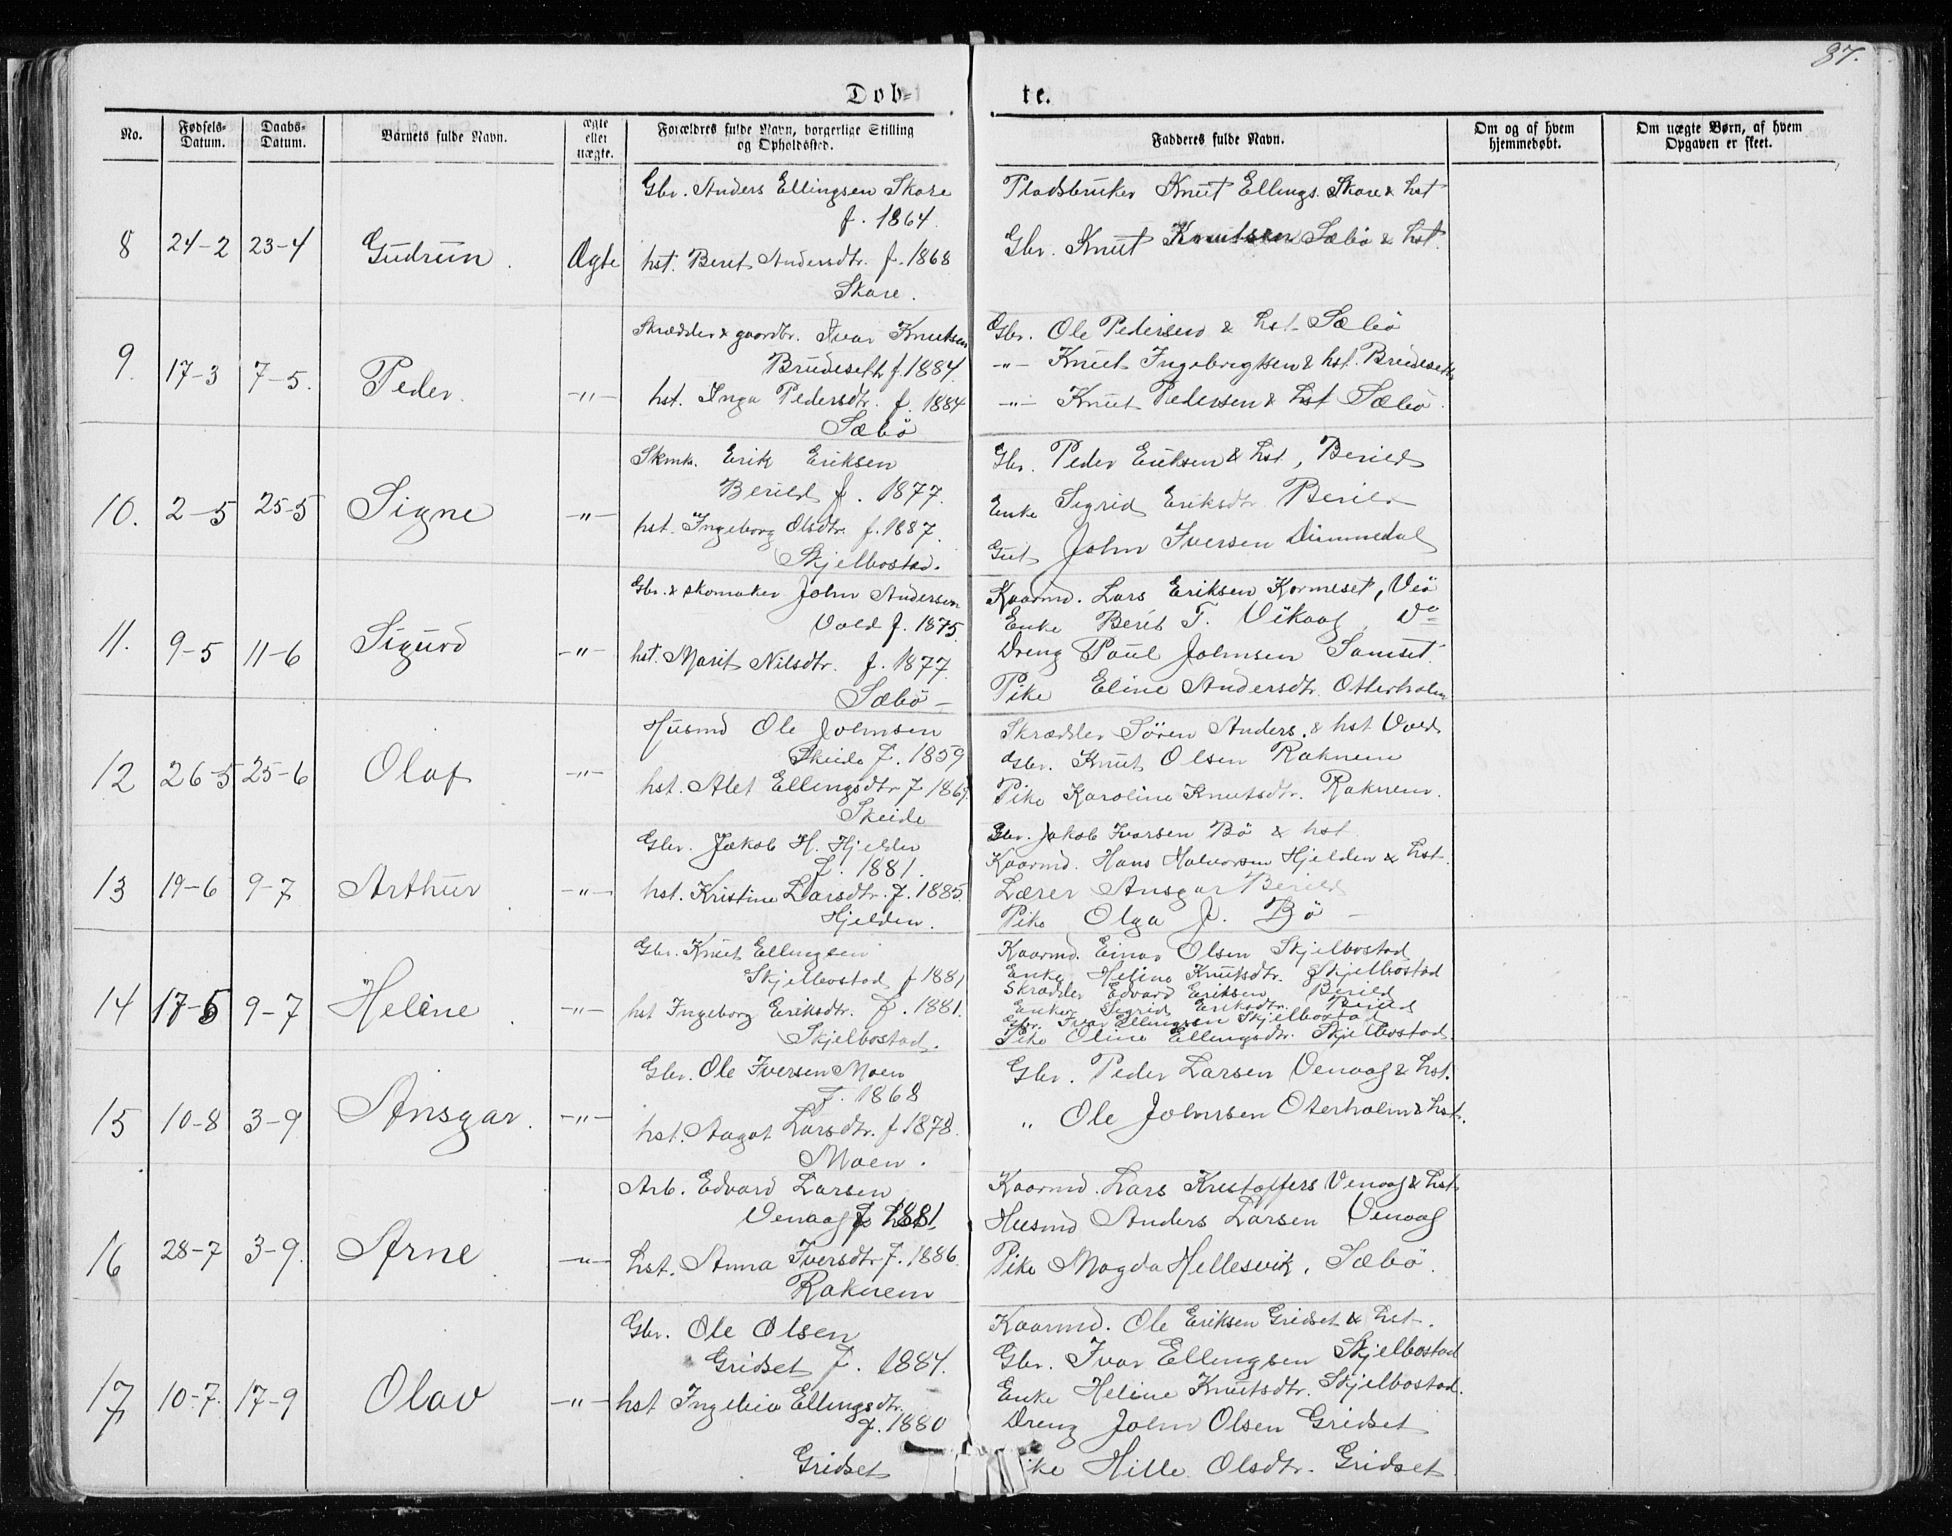 87.
Døb-
te.
No.
Fødsels-Datum.
Daabs-Datum.
Barnets fulde Navn.
ægte eller uægte.
Forældres fulde Navn, borgerlige Stilling og Opholdssted.
Fadderes fulde Navn.
Om og af hvem hjemmedøbt.
Om uægte Børn, af hvem Opgaven er skeet.
8 24-2 23-4 Gudrun. Ægte
Gbr. Anders Ellingsen Skare
f. 1864.
hst. Berit Andersdtr. f. 1868
Skare.
Pladsbruker Knut Ellings. Skare & hst
Gbr. Knut Knutsen Sæbø & hst.
9. 17-3 7-5. Peder. -"-
Skrædder & gaardbr. Ivar Knutsen
Brudeseth f. 1884.
hst. Inga Pedersdtr. f. 1884
Sæbø
Gbr. Ole Pedersen & hst. Sæbø
-"- Knut Ingebrigtsen & hst. Brudeseth
-"- Knut Pedersen & hst Sæbø.
10. 2-5 25-5 Signe -"-
Skmk. Erik Eriksen
Berild f. 1877.
hst. Ingeborg Olsdtr. f. 1887.
Skjelbostad.
Gbr. Peder Eriksen & hst, Berild
Enke Sigrid Eriksdtr. Berild
Gut John Iversen Dimmedal
11. 9-5 11-6 Sigurd -"-
Gbr. & skomaker John Andersen
Vold f. 1875.
hst. Marit Nilsdtr. f. 1877.
Sæbø -
Kaarmd. Lars Eriksen Kormeset, Veø
Enke Berit T. Vikaag, Do
Dreng Paul Johnsen Samset.
Pike Eline Andersdtr. Otterholm
12 26-5 25-6 Olaf -"-
Husmd Ole Johnsen
Skeide f. 1859
hst. Alet Ellingsdtr f 1867.
Skeide
Skrædder Søren Anders. & hst Vold
Gbr. Knut Olsen Raknem
Pike Karoline Knutsdtr. Raknem.
13 19-6 9-7 Arthur -"-
Gbr. Jakob H. Hjelden
f. 1881.
hst. Kristine Larsdtr. f. 1885.
Hjelden.
Gbr. Jakob Ivarsen Bø & hst
Kaarmd. Hans Halvorsen Hjelden & hst.
Lærer Ansgar Berild
Pike Olga J. Bø -
14 17-5 9-7 Heline. -"-
Gbr. Knut Ellingsen
Skjelbostad f 1881
hst Ingeborg Eriksdtr. f. 1881.
Skjelbostad.
Kaarmd. Einar Olsen Skjelbostad
Enke Heline Knutsdtr. Skjelbostad
Skrædder Edvard Eriksen Berild
Enke Sigrid Eriksdtr. Berild
Gbr. Ivar Ellingsen Skjelbostad
Pike Oline Ellingsdtr. Skjelbostad.
15 10-8 3-9 Ansgar. -"-
Gbr. Ole Iversen Moen
f. 1868
hst. Aagot Larsdtr. f. 1878.
Moen.
Gbr. Peder Larsen Venaag & hst.
" Ole Johnsen Oterholm & hst.
16 28-7 3-9. Arne. -"-
Arb. Edvard Larsen
Venaag f. 1881.
hst. Anna Iversdtr f. 1886.
Raknem
Kaarmd. Lars Kristoffers Venaag & hst
Husmd Anders Larsen Venaag
Pike Magda Hellesvik, Sæbø.
17 10-7. 17-9 Olav -"-
Gbr. Ole Olsen
Gridset f. 1884.
hst Ingebia Ellingsdtr.
f. 1880
Gridset
Kaarmd. Ole Eriksen Gridset & hst.
Gbr. Ivar Ellingsen Skjelbostad
Enke Heline Knutsdtr. Skjelbostad.
Dreng John Olsen Gridset
ike Hille Olsdtr. Gridset